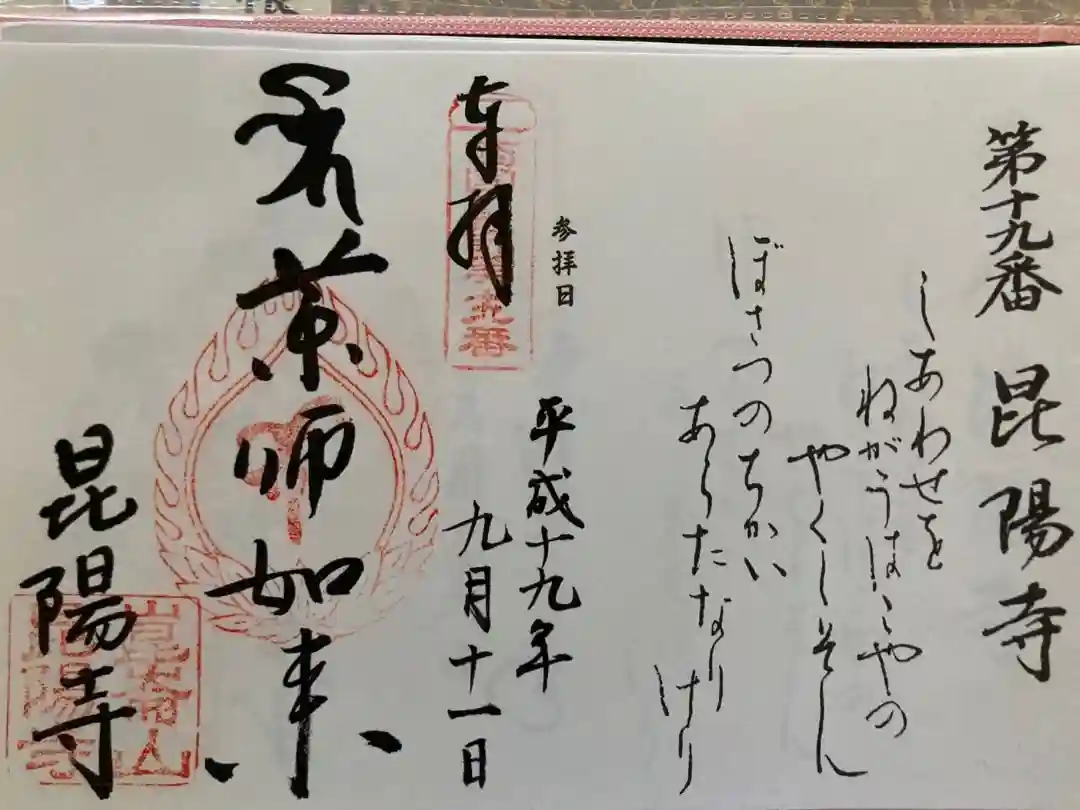 第十九番 昆陽寺
しあわせを
ねがうはこやの
やくしそん
ぼさつのちかい
あらたなり
けり
参拝日
平成十九年
九月十一日
奉拝
薬師如来
昆陽寺
崑崙山
昆陽寺